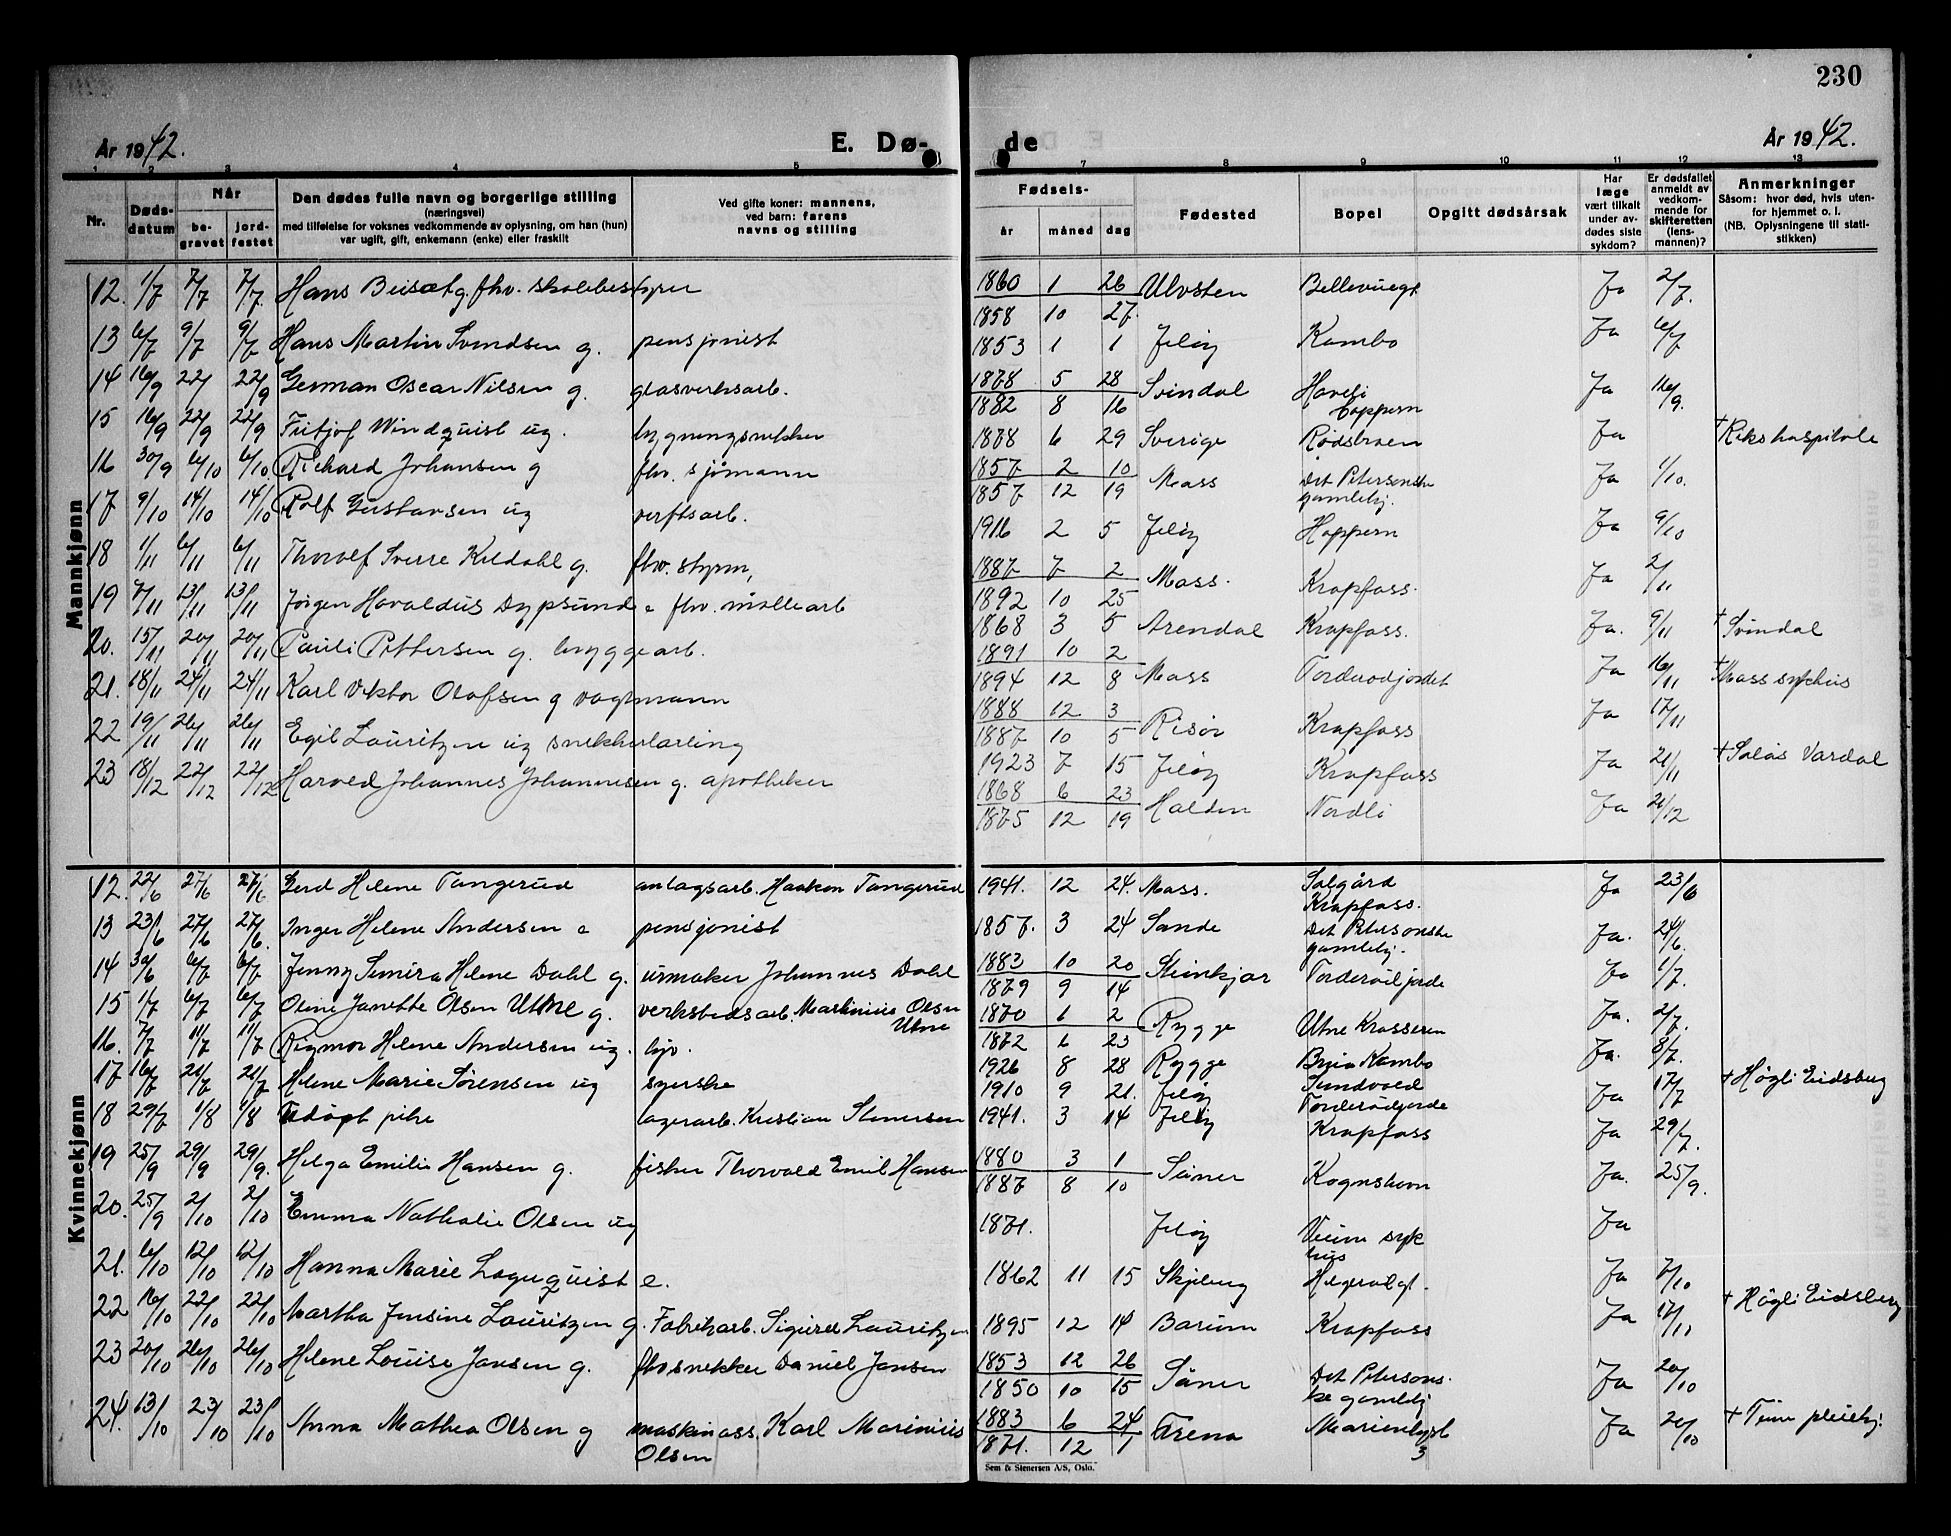 230
År 1942.
E. Dø-
de
År 1942.
1 2 3 4 5 7 8 9 10 11 12 13
Nr.
Døds-
datum
Når
be-
gravet
jord-
festet
Den dødes fulle navn og borgerlige stilling
(næringsvei)
med tilføielse for voksnes vedkommende av oplysning, om han (hun)
var ugift, gift, enkemann (enke) eller fraskilt
Ved gifte koner: mannens,
ved barn: farens
navns og stilling
Fødsels-
år måned dag
Fødested
Bopel
Opgitt dødsårsak
Har
læge
vært tilkalt
under av-
dødes siste
sykdom?
Er dødsfallet
anmeldt av
vedkom-
mende for
skifteretten
(lens-
mannen)?
Anmerkninger
Såsom: hvor død, hvis uten-
for hjemmet o. l.
(NB. Oplysningene til stati-
stikken)
Mannkjønn
12. 1/7 7/7 7/7. Hans Beisæt g. fhv. skolebestyrer 1860 1 26 Ulvsten Bellevuegt Ja 2/7.
1858 10 27.
13 6/7 9/7 9/7 Hans Martin Svendsen g. pensjonist 1853 1 1 Jeløy Kambo Ja 6/7
14 16/9 22/ 22/9 German Oscar Nilsen g. glasverksarb. 1878 5 28 Svindal Ja 16/9.
1882 8 16
15 16/9 22/9 22/9 Fritjof Windquist ug. bygningsnekker 1878 6 29 Sverige Rødsbroen Ja † Rikshospitale
16 30/9 6/10 6/10 Richard Johansen g fhv. sjømann 1857 2 10 Moss Det Petersonske Ja 1/10.
1857 12 19 gamlehj.
17 9/10 14/10 14/10 Rolf Gustavsen ug verftsarb. 1916 2 5 Jeløy Hoppern Ja 9/10
18 1/11 6/11 6/11 Thorolf Sverre Kildahl g. fhv. styrm, 1887 7 2 Moss. Krapfoss. Ja 2/11
1892 10 25
19 7/11 13/11 13/11 Jørgen Havaldus Dypsund e fhv. møllearb 1868 3 5 Arendal Krapfoss. Ja. 9/11 † Svindal
20. 15/11 20/11 20/11 Pauli Pettersen g. bryggearb. 1891 10 2 Moss Torderødjordet Ja 16/11 † Moss sykehus
1894 12 8
21. 18/11 24/11 24/11 Karl Viktor Olafsen g vagtmann 1888 12 3 Risør Krapfoss Ja 17/11
1887 10 5
22 19/11 26/11 26/11 Egil Lauritzen ug snekkerlærling 1923 7 15 Jeløy Krapfoss Ja 21/11 † Solås Vardal
23 18/12 22/12 22/12 Harved Johannes Johannesen g. apotheker 1868 6 23 Halden Nordli Ja 21/12
1875 12 19
Kvinnekjønn
12. 22/6 27/6 27/6. Gerd Helene Tangerud anlagsarb. Haakon Tangerud 1941. 12 24. Moss. Solgård Ja 23/6
Krapfoss.
13 23/6 27/6 27/6. Inger Helene Andersen e pensjonist 1857. 3 24 Sande Det Petersonske Ja. 24/6.
gamlehj.
14 30/6 6/7 6/7 Jenny Semira Helene Dahl g. urmaker Johannes Dahl 1883 10 20 Steinkjær Ja 1/7.
1879 9 14
15 1/7 6/7 6/7 Oline Janette Olsen Utne g. verkstedsarb. Martinius Olsen 1870 1 2 Rygge Utne Krosseren Ja. 2/7.
Utne 1872 6 23
16. 7/7 11/7 11/7 Rigmor Helene Andersen ug. hjv. 1926 8 28 Rygge Kambo Ja. 8/7.
17 16/7 21/7 21/7 Helene Marie Sørensen ug syerske 1910 9 21. Jeløy Sundvold Ja 17/7 † Høgli Eidsberg
18 29/7 1/8 1/8 Udøpt pike lagerarb. Kristian Stenersen 1941. 3 14 Jeløy Krapfoss Ja 29/7.
19 25/9 29/9 29/9. Helga Emilie Hansen g. fisker Thorvald Emil Hansen 1880 3 1 Såner Kognshavn Ja. 25/9.
1887 8 10
20. 25/9 2/10 2/10 Emma Nathalie Olsen ug 1871. Jeløy Veum syk Ja
hus
21. 6/10 12/10 12/10 Hanna Marie Lagerquist e. 1862 11 15 Skjeberg Ja 7/10
22 16/10 22/10 22/10 Martha Jensine Lauritzen g. Fabrikarb. Sigurd Lauritzen 1895 12 14 Bærum Krapfoss Ja 17/10 † Høgli Eidsberg
23 20/10 26/10 26/10 Helene Louise Jansen g. fhv snekker Daniel Jansen 1853 12 26 Såner Det Petersons- Ja 20/10
1850 10 15 ke gamlehj
24. 13/10 23/10 23/10 Anna Mathea Olsen g maskinass. Karl Marinius 1883 6 24 Marienlyst Ja 20/10
Olsen 1871. 12 1 3
Sem & Stenersen A/S, Oslo.